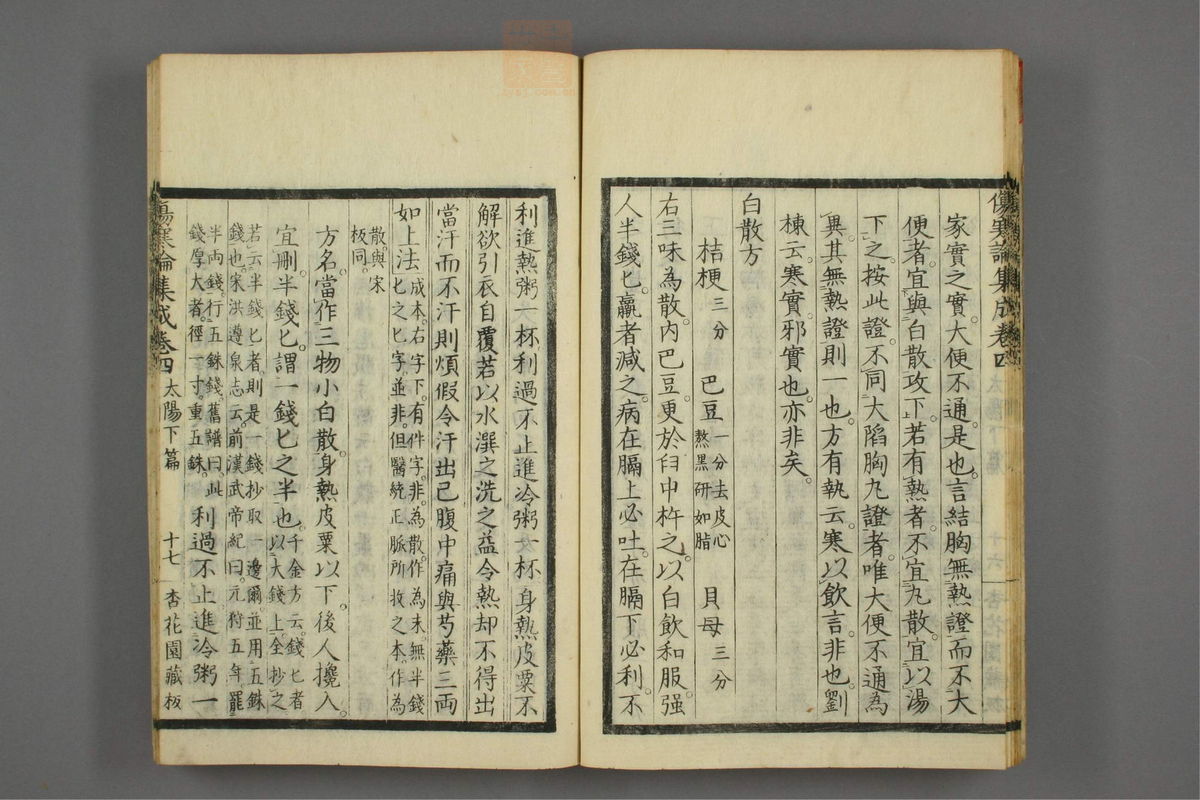 傷寒論集成卷四
家實之實。大便不通。是也。言結胸無熱證而不大
便者。宜與白散攻下。若有熱者。不宜丸散。宜以湯
下之。按此證。不同大陷胸丸證者。唯大便不通為
異。其無熱證則一也。方有執云。寒以飲言非也。劉
棟云。寒實。邪實也。亦非矣。
白散方
桔梗三分 巴豆一分去皮心熬黑研如脂 貝母三分
右三味為散。內巴豆。更於臼中杵之。以白飲和服。强
人半錢匕。羸者減之。病在膈上必吐。在膈下必利。不
利進熱粥一杯。利過不止進冷粥一杯。身熱皮粟不
解。欲引衣自覆。若以水潠之洗之。益令熱却不得出。
當汗而不汗則煩。假令汗出已。腹中痛。與芍藥三兩
如上法。成本。右字下。有件字。非。為散。作為末。無半錢
匕之匕字。並非。但醫統正脈所收之本。作為
散。與宋
板同。
方名。當作三物小白散。身熱皮粟以下。後人攙入。
宜刪。半錢匕。謂一錢匕之半也。千金方云。錢匕者
以大錢上全抄之
若云半錢匕者。則是一錢抄取一邊爾。並用五銖
錢也。宋洪遵泉志云。前漢武帝紀曰。元狩五年。罷
半兩錢。行五銖錢。舊譜曰。此
錢厚大者。徑一寸。重五銖。利過不止。進冷粥一
傷寒論集成卷四 太陽下篇 十七 杏花園藏板